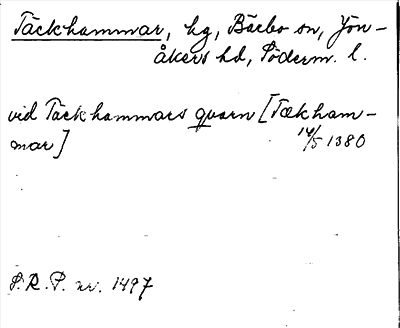 Täckhammar, hg, Bärbo sn, Jön-
åkers hd, Söderm. l.
vid Täckhammars qvarn [Tækham-
mar] 14/5 1380
S.R.P. nr. 1497